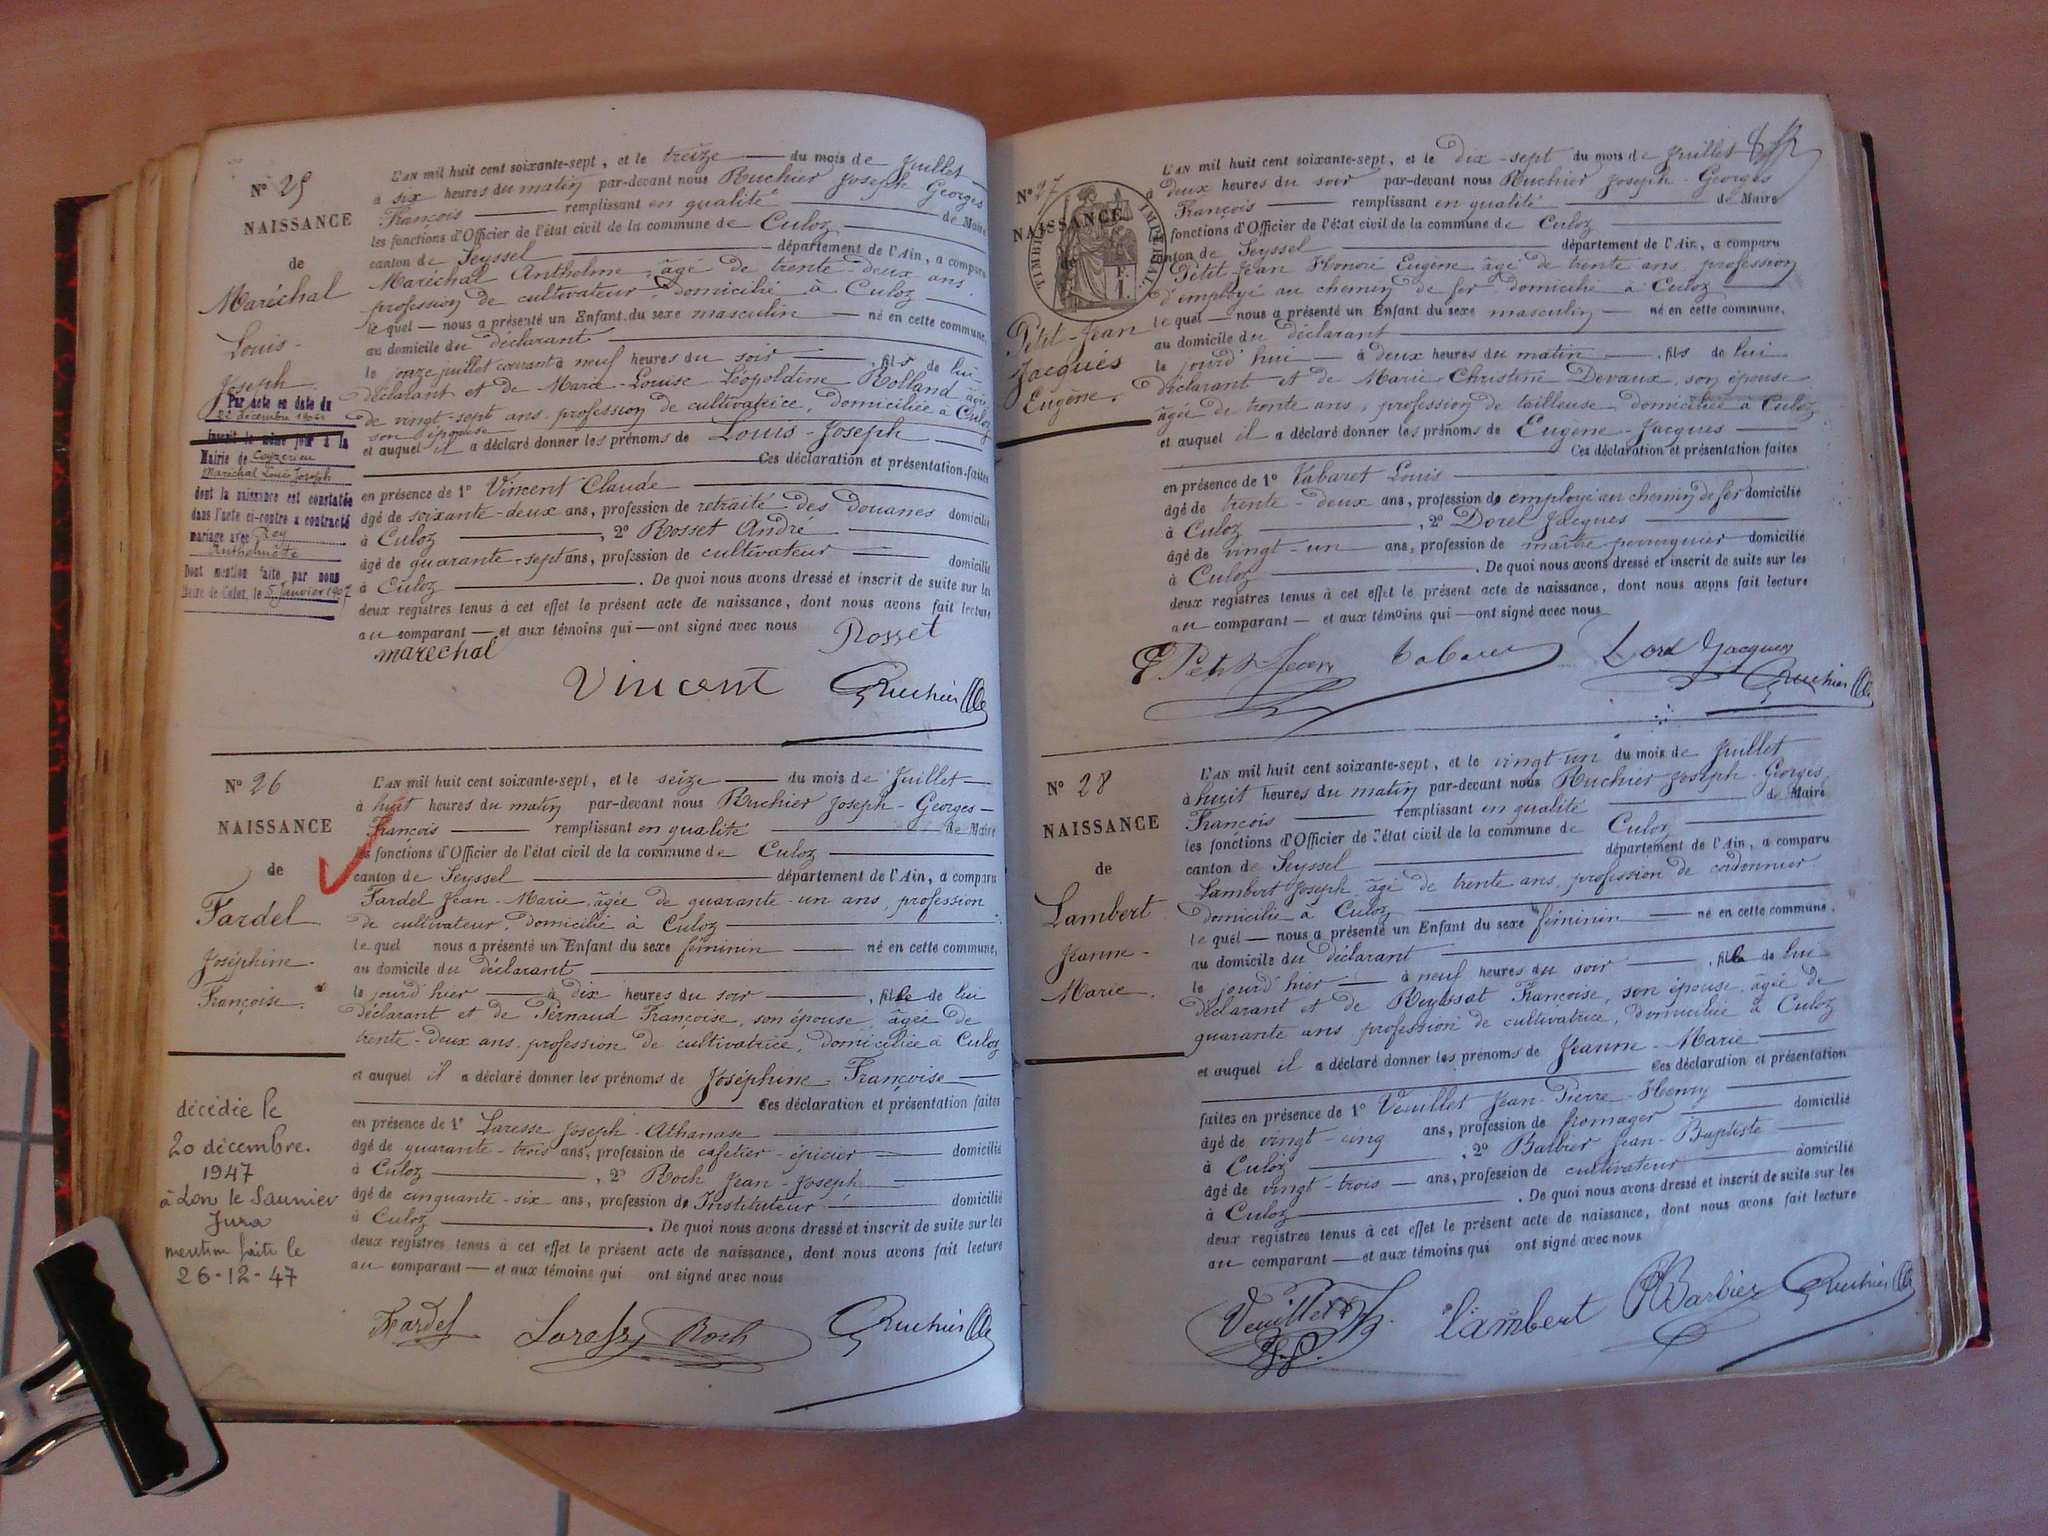 N° 25
NAISSANCE
de
Maréchal
Louis-
Joseph.
Par acte en date du
22 décembre
inscrit le même jour à la
Mairie de Ceyzerieu
Maréchal Louis Joseph
dont la naissance est constatée
dans l'acte ci-contre a contracté
mariage avec Rey
Anthelmette
Dont mention faite par nous
Maire de Culoz, le 5 Janvier 1907
L'AN mil huit cent soixante-sept, et le treize du mois de Juillet
à six heures du matin par-devant nous Ruchier Joseph Georges
François remplissant en qualité de Maire
les fonctions d'Officier de l'état civil de la commune de Culoz
canton de Seyssel département de l'Ain, a comparu
Maréchal Anthelme, âgé de trente-deux ans,
profession de cultivateur, domicilié à Culoz
le quel nous a présenté un Enfant du sexe masculin né en cette commune,
au domicile du déclarant
le onze juillet courant à neuf heures du soir, fils de lui
déclarant et de Marie-Louise-Léopoldine Rolland âgée
de vingt-sept ans, profession de cultivatrice, domiciliée à Culoz
son épouse
et auquel il a déclaré donner les prénoms de Louis-Joseph
Ces déclaration et présentation faites
en présence de 1° Vincent Claude
âgé de soixante-deux ans, profession de retraité des Douanes domicilié
à Culoz, 2° Rosset André
âgé de quarante-sept ans, profession de cultivateur domicilié
à Culoz. De quoi nous avons dressé et inscrit de suite sur les
deux registres tenus à cet effet le présent acte de naissance, dont nous avons fait lecture
au comparant et aux témoins qui ont signé avec nous
marechal Rosset
Vincent Ruchier
N° 26
NAISSANCE
de
Fardel
Joséphine-
Françoise.
décédée le
20 décembre.
1947
à Lon le Saunier
Jura
mention faite le
26-12-47
L'AN mil huit cent soixante-sept, et le seize du mois de Juillet
à huit heures du matin par-devant nous Ruchier Joseph-Georges-
François remplissant en qualité de Maire
les fonctions d'Officier de l'état civil de la commune de Culoz
canton de Seyssel département de l'Ain, a comparu
Fardel Jean-Marie, âgée de quarante-un ans, profession
de cultivateur, domicilié à Culoz
le quel nous a présenté un Enfant du sexe féminin né en cette commune,
au domicile du déclarant
le jourd'hier à dix heures du soir, fille de lui
déclarant et de Pernaud Françoise, son épouse, âgée de
trente-deux ans, profession de cultivatrice, domiciliée à Culoz
et auquel il a déclaré donner les prénoms de Joséphine Françoise
Ces déclaration et présentation faites
en présence de 1° Laresse Joseph-Athanase
âgé de quarante-trois ans, profession de cafetier-épicier domicilié
à Culoz, 2° Roch Jean-Joseph
âgé de cinquante-six ans, profession de Instituteur domicilié
à Culoz. De quoi nous avons dressé et inscrit de suite sur les
deux registres tenus à cet effet le présent acte de naissance, dont nous avons fait lecture
au comparant et aux témoins qui ont signé avec nous
Fardel Roch Ruchier
N° 27
NAISSANCE
de
TIMBRE IMPÉRIAL
Petit-Jean
Jacques
Eugène.
L'AN mil huit cent soixante-sept, et le dix-sept du mois de Juillet
à deux heures du soir par-devant nous Ruchier Joseph-Georges
François remplissant en qualité de Maire
fonctions d'Officier de l'état civil de la commune de Culoz
canton de Seyssel département de l'Ain, a comparu
Petit-Jean Honoré Eugène âgé de trente ans, profession
d'employé au chemin de fer domicilié à Culoz
le quel nous a présenté un Enfant du sexe masculin né en cette commune,
au domicile du déclarant
le jourd'hui à deux heures du matin, fils de lui
déclarant et de Marie Christine Devaux, son épouse
âgée de trente ans, profession de tailleuse, domiciliée à Culoz
et auquel il a déclaré donner les prénoms de Eugène-Jacques
Ces déclaration et présentation faites
en présence de 1° Tabaret Louis
âgé de trente-deux ans, profession de employé au chemin de fer domicilié
à Culoz, 2° Dorel Jacques
âgé de vingt-un ans, profession de maître perruquier domicilié
à Culoz. De quoi nous avons dressé et inscrit de suite sur les
deux registres tenus à cet effet le présent acte de naissance, dont nous avons fait lecture
au comparant et aux témoins qui ont signé avec nous
E Petit Jean Tabaret Jacques
Ruchier
N° 28
NAISSANCE
de
Lambert
Jeanne-
Marie.
L'AN mil huit cent soixante-sept, et le vingt-un du mois de Juillet
à huit heures du matin par-devant nous Ruchier Joseph-Georges
François remplissant en qualité de Maire
les fonctions d'Officier de l'état civil de la commune de Culoz
canton de Seyssel département de l'Ain, a comparu
Lambert Joseph, âgé de trente ans, profession de cordonnier
domicilié à Culoz
le quel nous a présenté un Enfant du sexe féminin né en cette commune,
au domicile du déclarant
le jourd'hier à neuf heures du soir, fille de lui
déclarant et de Reyssat Françoise, son épouse, âgée de
quarante ans, profession de cultivatrice, domiciliée à Culoz
et auquel il a déclaré donner les prénoms de Jeanne-Marie
Ces déclaration et présentation
faites en présence de 1° Veuillet Jean-Pierre-Henry
âgé de vingt-cinq ans, profession de fromager domicilié
à Culoz, 2° Barbier Jean-Baptiste
âgé de vingt-trois ans, profession de cultivateur domicilié
à Culoz. De quoi nous avons dressé et inscrit de suite sur les
deux registres tenus à cet effet le présent acte de naissance, dont nous avons fait lecture
au comparant et aux témoins qui ont signé avec nous
Veuillet lambert Barbier Ruchier